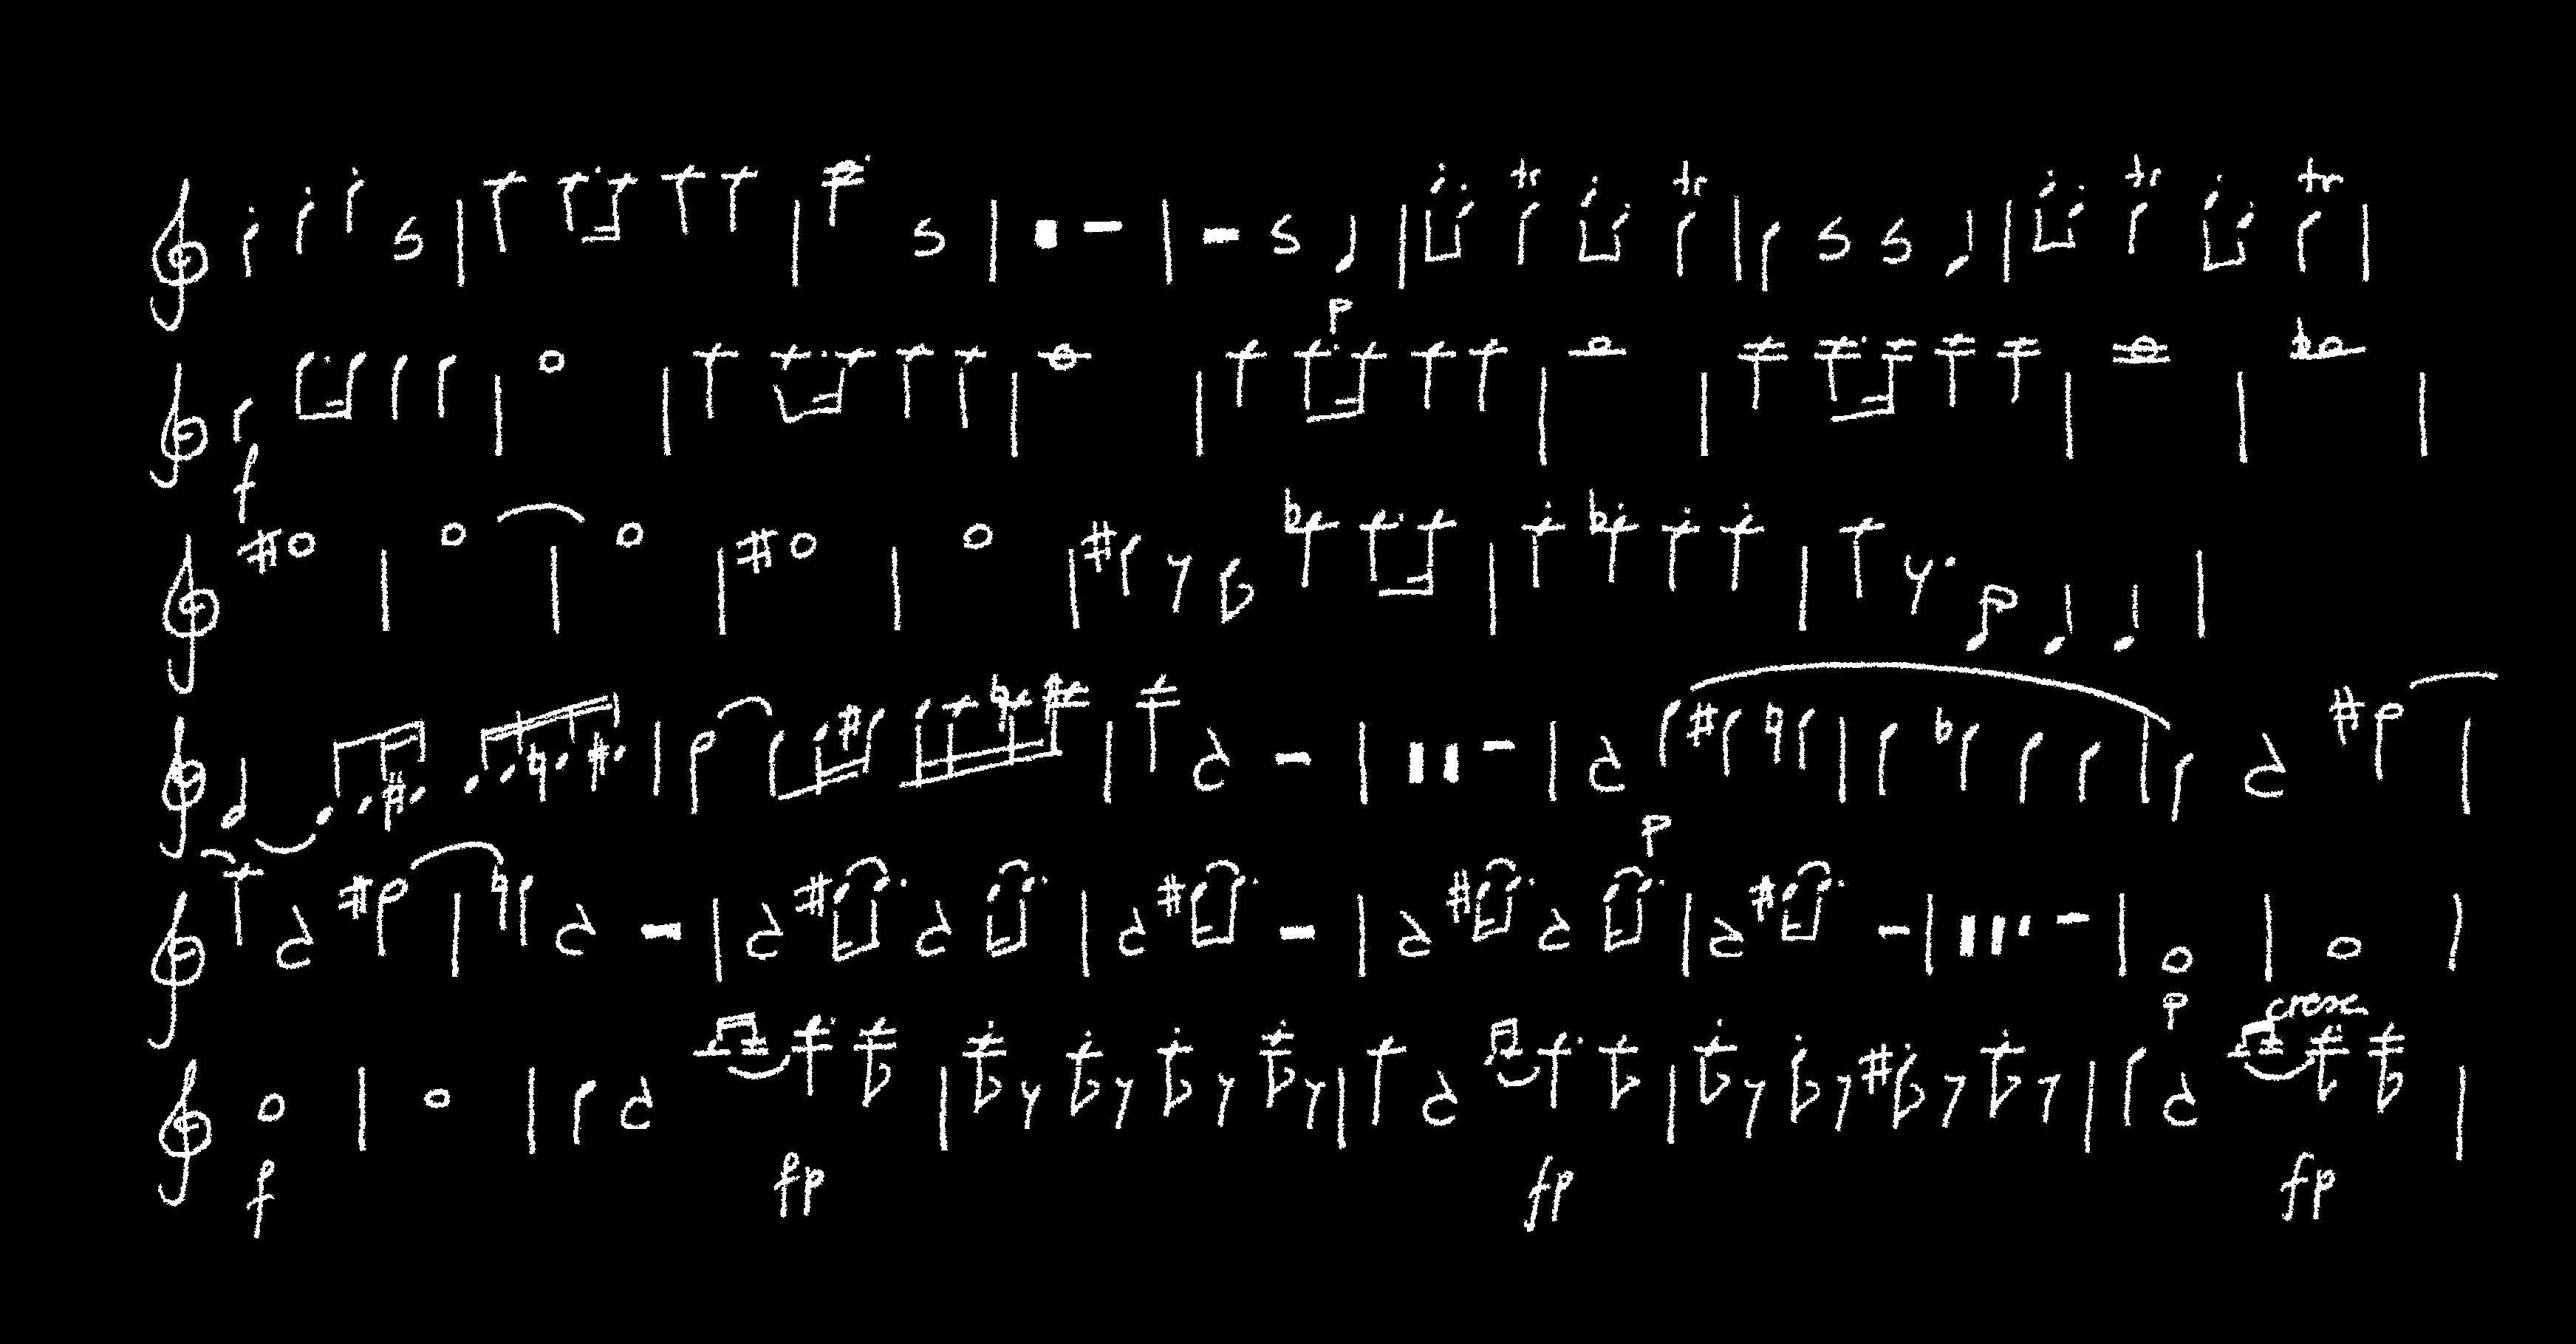 tr tr tr tr
p
f
p
p cresc
f fp fp fp